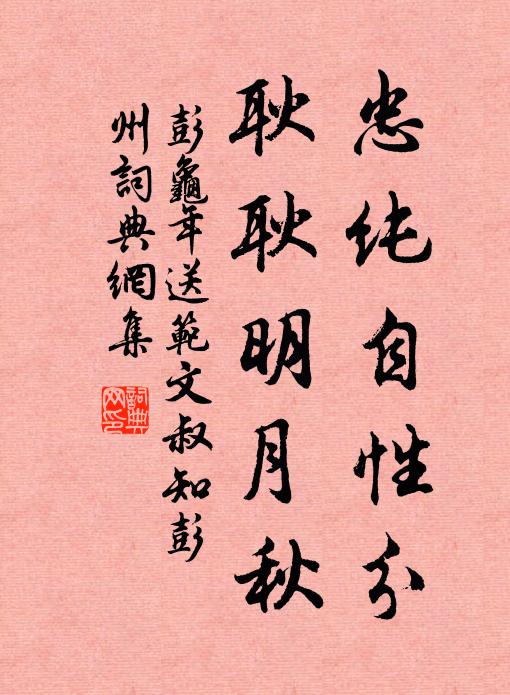 忠纯自性分
耿耿明月秋
彭龜年送範文叔知彭
州詞典網集
詞典
网印